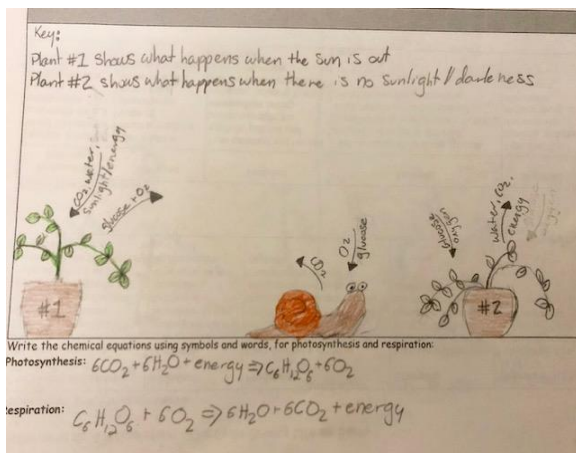 Key:
Plant #1 shows what happens when the sun is out
Plant #2 shows what happens when there is no sunlight//darkness
CO2, water,
sunlight/energy
glucose + O2
#1
CO2
O2
glucose
glucose
oxygen
water, CO2,
energy
#2
Write the chemical equations using symbols and words, for photosynthesis and respiration:
Photosynthesis: 6CO2 + 6H2O + energy ⇒ C6H12O6 + 6O2
espiration: C6H12O6 + 6O2 ⇒ 6H2O + 6CO2 + energy